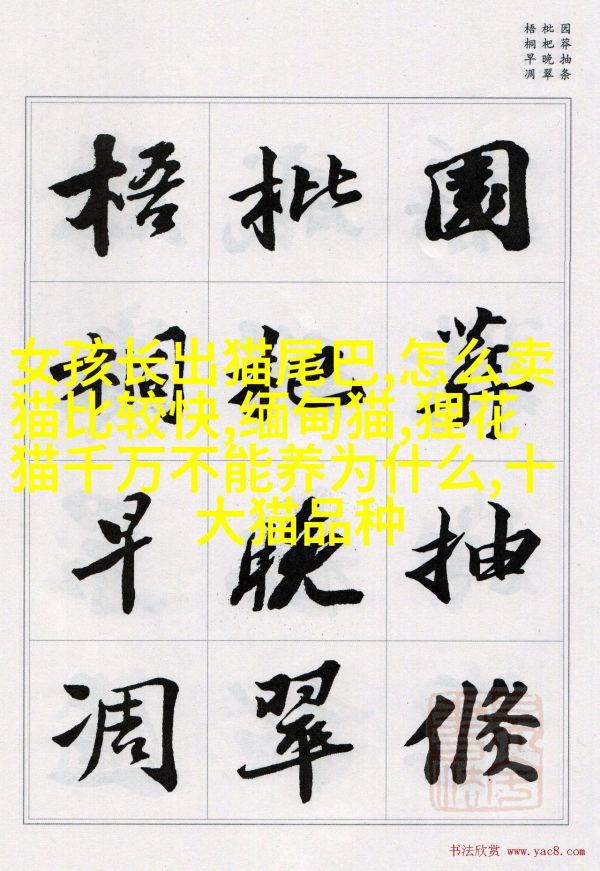 园莽抽条
枇杷晚翠
梧桐早凋
園莽抽條
枇杷晚翠
梧桐早凋
女孩长出猫尾巴,怎么卖
猫比较快,缅甸猫,狸花
猫千万不能养为什么,十
大猫品种
书法欣赏 www.yac8.com